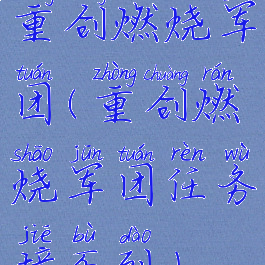 重创燃烧军
tuán zhòng chuàng rán
团(重创燃
shāo jūn tuán rèn wù
烧军团任务
jiē bù dào
接不到)